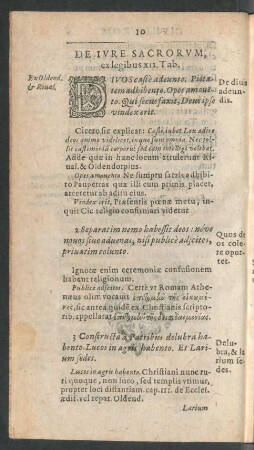 10
DE IVRE SACRORVM,
ex legibus XII. Tab.
Ex Oldend.
& Riual.
DIVOS castè adeunto. Pieta-
tem adhibento. Opes amoue-
to. Qui secus faxit, Deus ipse
vindex erit.
De diuis
adeun-
dis.
Cicero sic explicat: Castè iubet Lex adire
deos animo videlicet, in quo sunt omnia. Nec tol-
lit castimoniã corporis: sed
Adde quæ in hanc locum attulerunt Riual.
& Oldendorpius.
Opes amouento Ne sumptu sacris adhibito
Paupertas quæ illi cum primis placet,
arceretur ab aditu eius.
Vindex erit, Præsentis pœnæ metu, in-
quit Cic. religio confirmari videtur
2 Separatim nemo habessit deos: néve
nouos siue aduenas, nisi publicè adscitos,
priuatim colunto.
Quos de-
os cole-
re opor-
tet.
Ignotæ enim ceremoniæ confusionem
habent religionum.
Publicè adscitos. Certè vt Romam Athe-
næus olim vocauit
sic antea quidẽ ex Christianis scripto-
rib. appellatæ
3 Constructa à Patribus delubra ha-
bento. Lucos in agris habento. Et Larium
sedes.
Delu-
bra, & la
rium se-
des.
Lucos in agris habento. Christiani nunc ru-
ri quoque, non luco, sed templis vtimur,
propter loci distantiam. cap. III. de Eccles.
ædif. vel repar. Oldend.
Larium